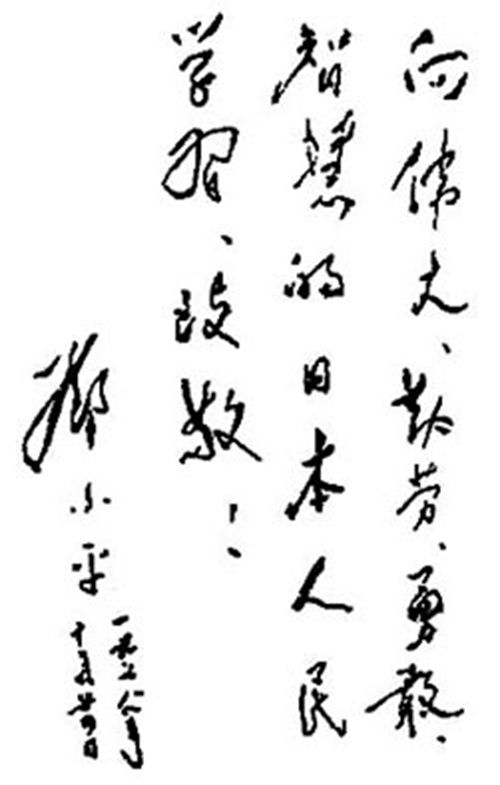 向偉大、勤劳、勇敢、
智慧的日本人民
学習、致敬！
鄧小平
一九七八年
十月廿四日